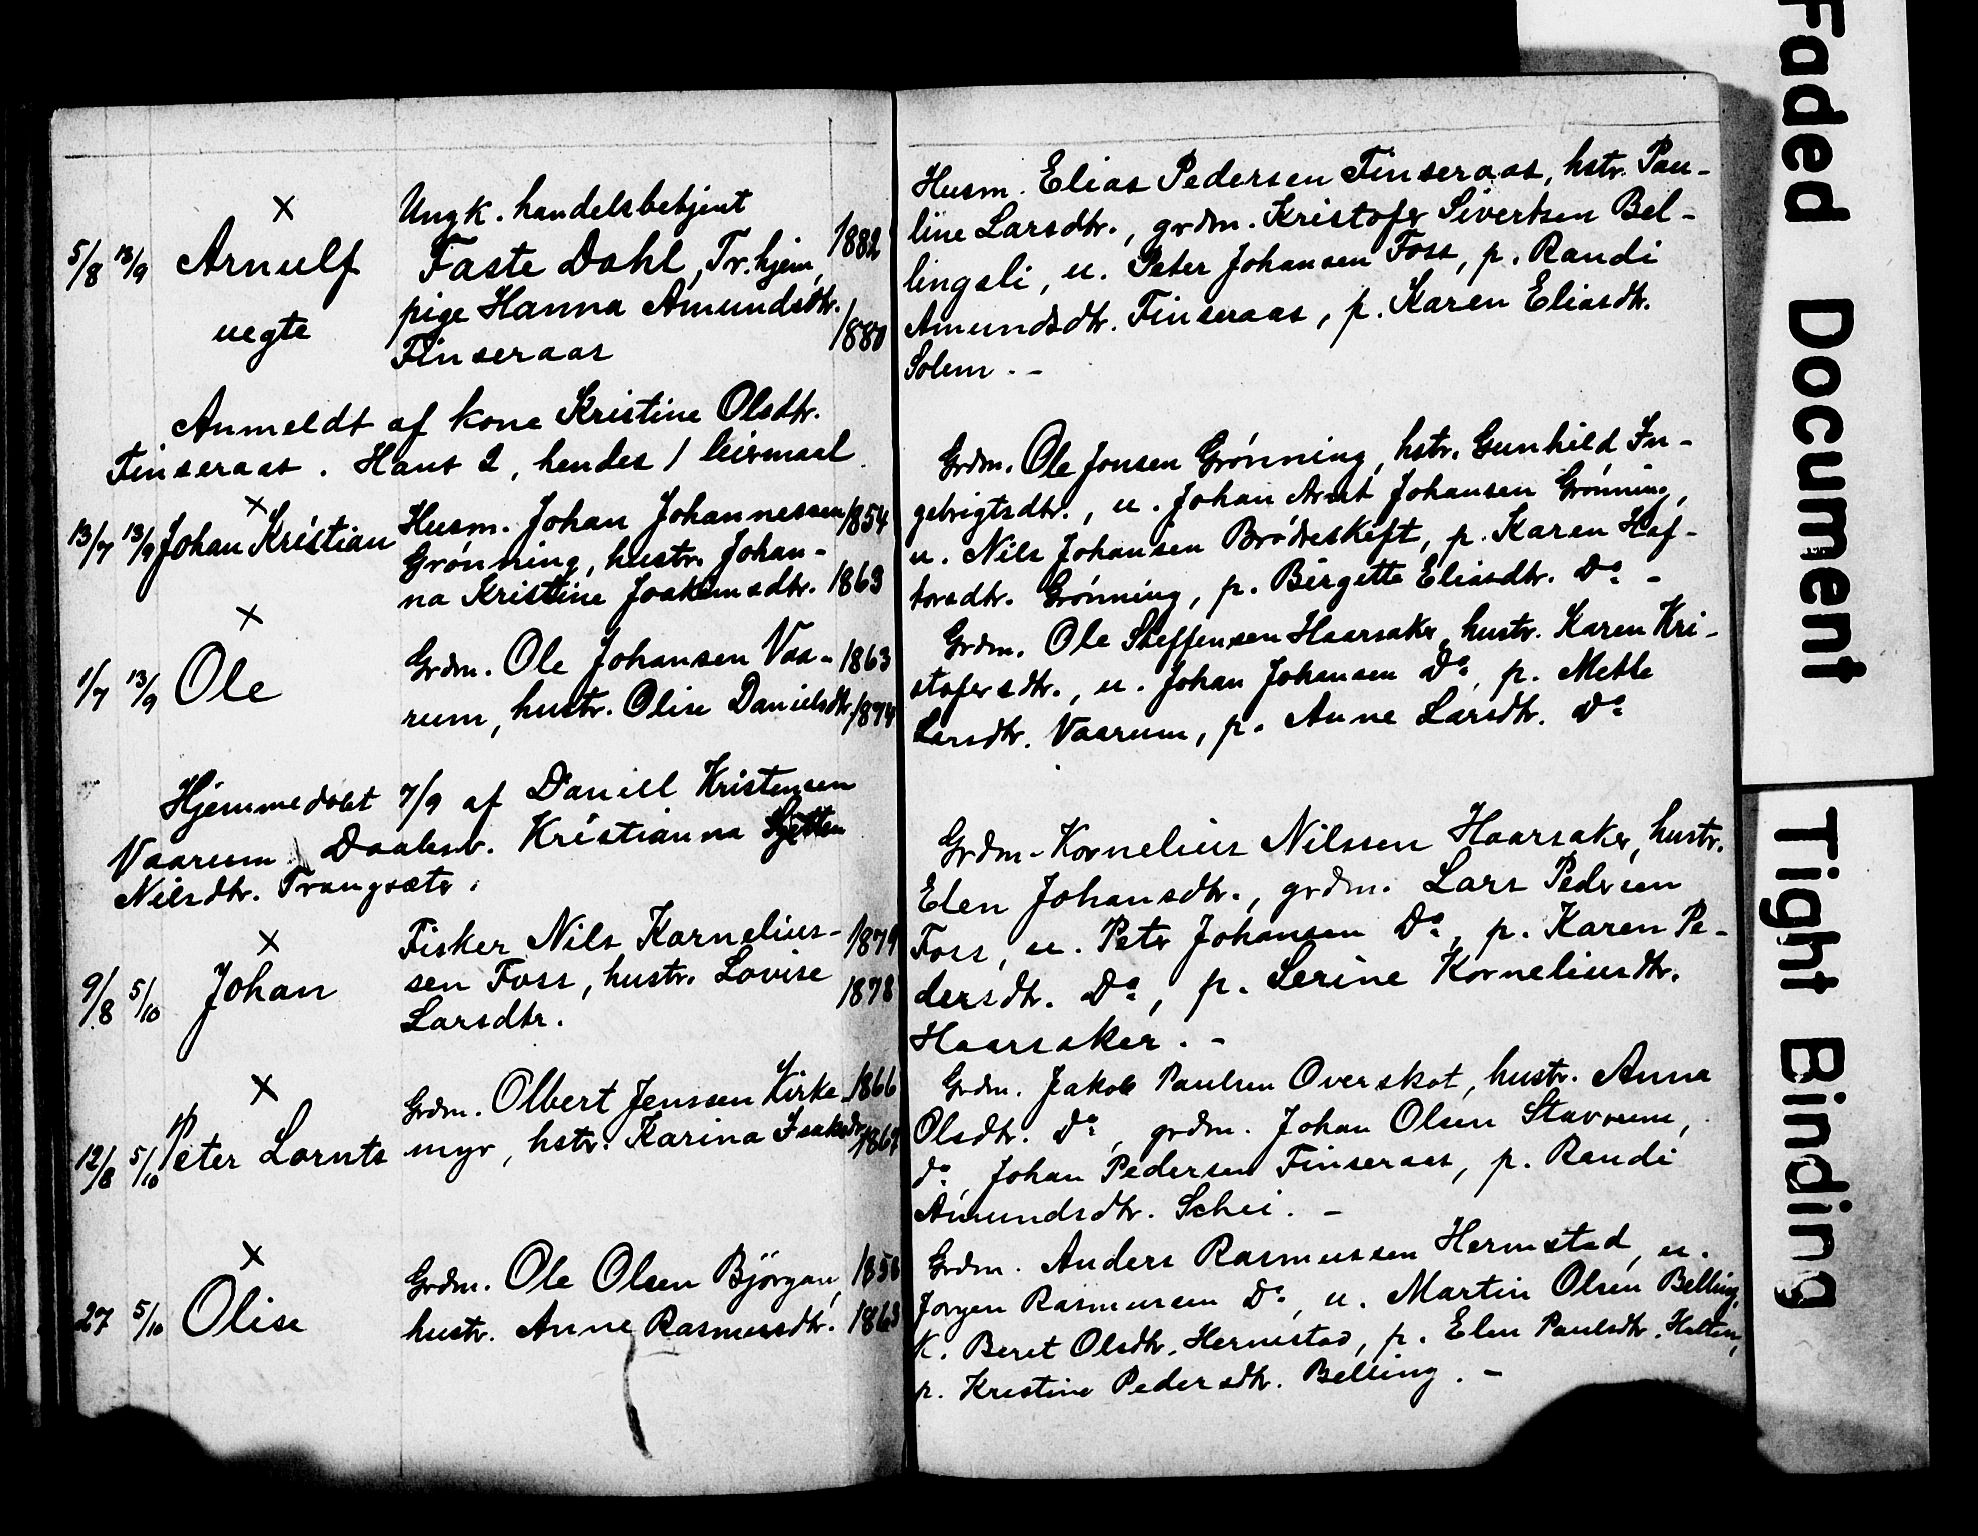 ×
Ungk. handelsbetjent
5/8 13/9 Arnulf Faste Dahl, Tr.hjem, 1882
uegte pige Hanna Amundsdtr. 1880
Finseraas
Anmeldt af kone Kristine Olsdtr.
Finseraas. Hans 2, hendes 1 leiermaal
×
13/7 13/9 Johan Kristian Husm. Johan Johannessen 1854
Grønning, hustr. Johan-
na Kristine Joakimsdtr. 1863
×
1/7 13/9 Ole Grdm. Ole Johansen Vaa- 1863
rum, hustr. Olise Danielsdtr. 1874
Hjemmedøbt 7/9 af Daniel Kristensen
Vaarum. Daabsv. Kristianna
Nilsdtr. Trangsæter.
×
Fisker Nils Kornelius- 1879
9/8 5/10 Johan sen Foss, hustr. Lovise 1878
Larsdtr.
×
Grdm. Olbert Jenssen Kirke- 1866
12/8 5/10 Peter Lornts myr, hstr. Karina Isaksdtr. 1869
×
27 5/10 Olise Grdm. Ole Olsen Bjørgan, 1858
hustr. Anne Rasmusdtr. 1863
Husm. Elias Pedersen Finseraas, hstr. Pau-
line Larsdtr., grdm. Kristofer Sivertsen Bel-
lingsli, u. Peter Johansen Foss, p. Randi
Amundsdtr. Finseraas, p. Karen Eliasdtr.
Solem. -
Grdm. Ole Jonsen Grønning, hstr. Gunhild In-
gebrigtsdtr., u. Johan Arnt Johansen Grønning,
u. Nils Johansen Brødreskift, p. Karen Haf-
torsdtr. Grønning, p. Birgitte Eliasdtr. Do -
Grdm. Ole Steffensen Haarsaker, hustr. Karen Kri-
stofersdtr., u. Johan Johansen Do, p. Mette
Larsdtr. Vaarum, p. Anne Larsdtr. Do
Grdm. Kornelius Nilssen Haarsaker, hustr.
Elen Johansdtr., grdm. Lars Pedersen
Foss, u. Peter Johansen Do, p. Karen Pe-
dersdtr. Do, p. Serine Korneliusdtr.
Haarsaker. -
Grdm. Jakob Paulsen Overskot, hustr. Anna
Olsdtr. Do, grdm. Johan Olsen Stavrum,
do, Johan Pedersen Finseraas, p. Randi
Amundsdtr. Schei. -
Grdm. Anders Rasmussen Hermstad, u.
Jørgen Rasmussen Do, u. Martin Olsen Belling,
K. Beret Olsdtr. Hermstad, p. Elen Paulsdtr. Halten,
p. Kristine Pedersdtr. Belling. -
Faded Document
Tight Binding